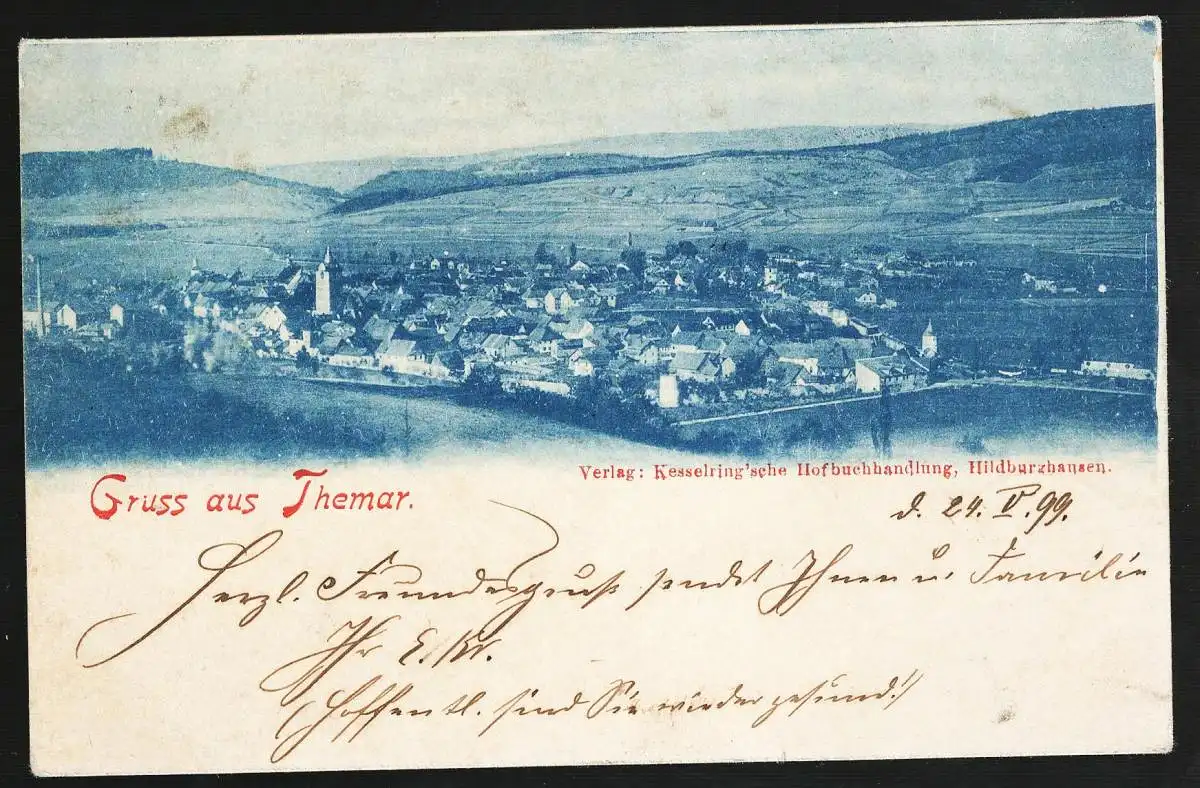 Verlag: Kesselring'sche Hofbuchhandlung, Hildburghausen.
Gruss aus Themar.
d. 24. V. 99.
Herzl. Freundesgruß sendet Ihnen u. Familie
Ihr E. Kr.
(Hoffentl. sind Sie wieder gesund!)